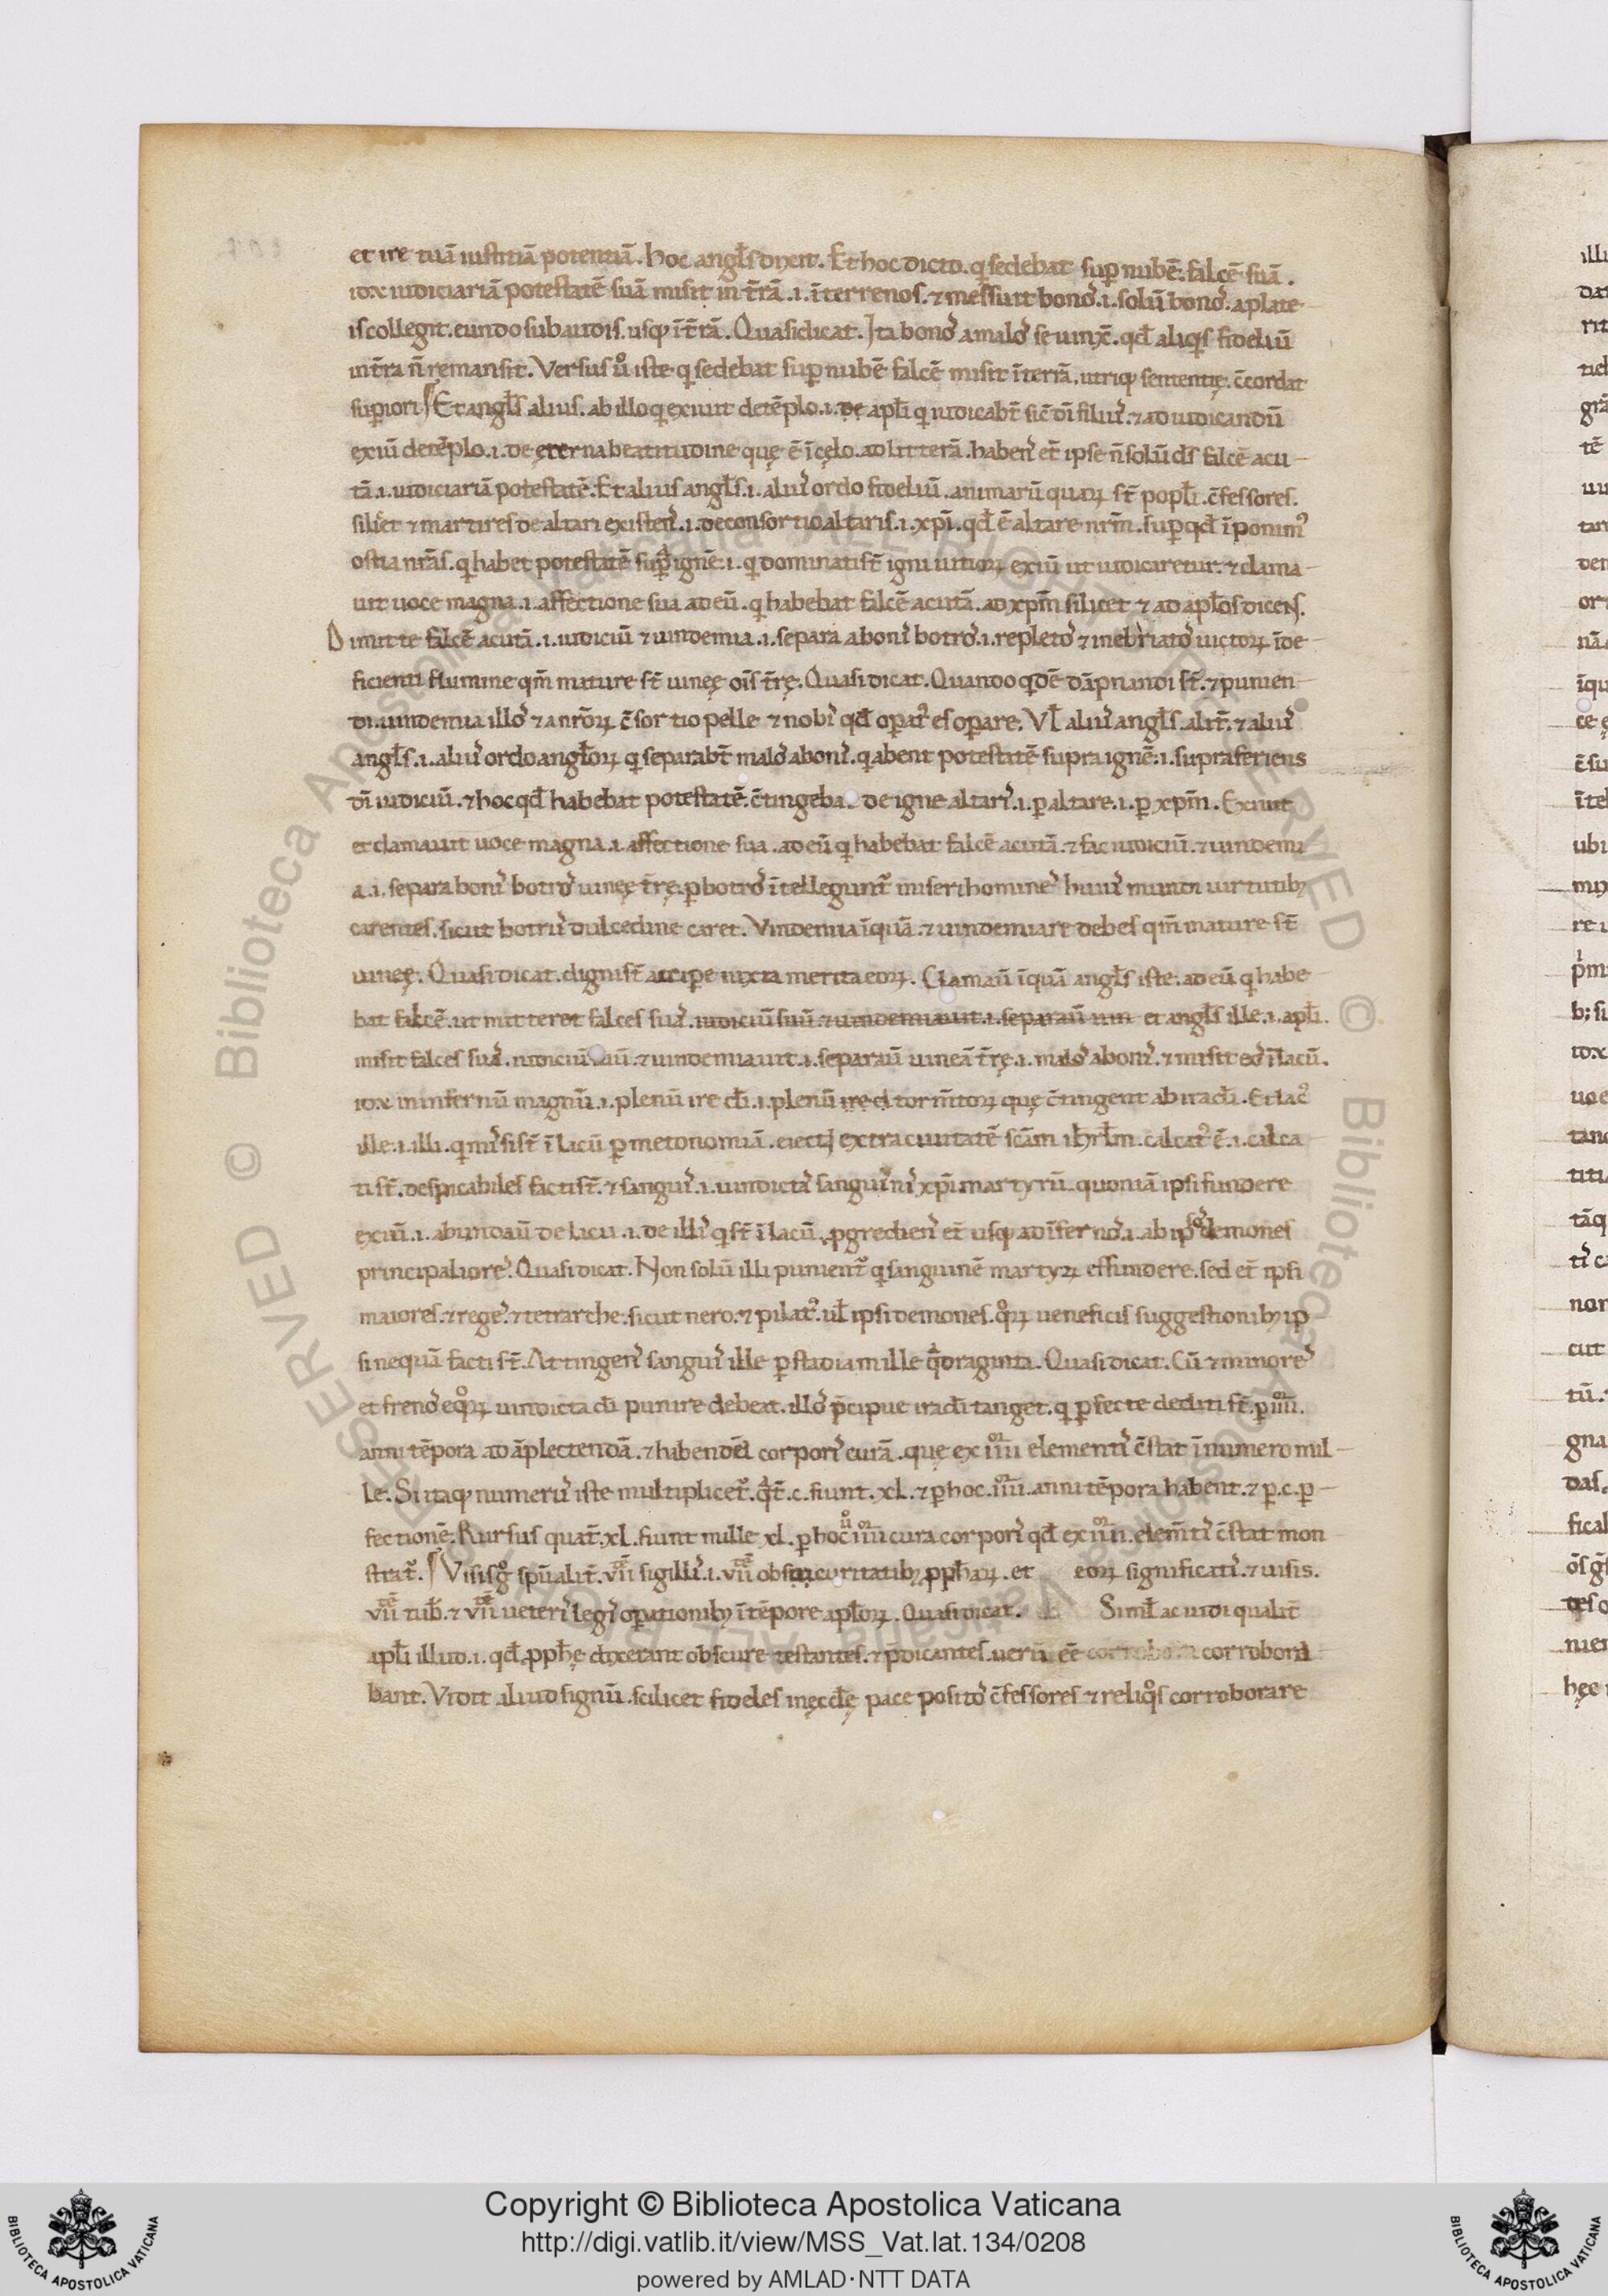 et ire tuā iustitiā potentiā. hoc angl̄s dixit. Et hoc dicto. q sedebat sup nubē. falcē suā.
id.x iudiciariā potestatē suā misit in t̄rā .i. ī terrenos. ⁊ messuit bonos .i. solū bonos. a plate
is collegit. eundo subaudis. usq; ī t̄rā. Quasi dicat. Ita bonos a malos seiunx̄. qđ aliq̄s fideliū
in t̄ra n̄ remansit. Versus ů iste q sedebat sup nubē falcē misit ī terrā, utriq; sententię. c̄cordat
superiori ¶ Et angl̄s alius. ab illo q exiuit de tēplo .i. de apl̄i q iudicabt̄ sic̄ dī filius. ⁊ ad iudicandū
exiū de tēplo .i. de ęterna beatitudine quę ē ī cęlo. ad litterā. habens et̄ ipse n̄ solū ds̄ falcē acu-
tā .i. iudiciariā potestatē. Et alius angl̄s .i. alius ordo fideliū. animarū quaꝝ st̄ popl̄i. c̄fessores.
silicet ⁊ martires de altari existens .i. de consortio altaris .i. xp̄i. qđ ē altare nrm̄. sup qđ ī ponim᾽
ostia nrās. q habet potestatē supra ignē .i. q dominati st̄ igni uitioꝝ exiū ut iudicaretur. ⁊ clama-
uit uoce magna .i. affectione sua ad eū. q habebat falcē acutā. ad xpm̄ silicet ⁊ ad aplos dicens.
Dimitte falcē acutā .i. iudiciū ⁊ uindemia .i. separa a bonis botros .i. repletos ⁊ inebriatos uictoꝝ ī de-
ficienti flumine qm̄ mature st̄ uineę ois̄ t̄rę. Quasi dicat. Quando qdē dāpnandi st̄. ⁊ punien-
di. uindemia illos ⁊ a nr̄oꝝ c̄sortio pelle ⁊ nobis qđ opat᾽ es opare. Vl̄ alius angl̄s. alit̄. ⁊ alius
angl̄s .i. alius ordo angl̄oꝝ q separabt̄ malos a bonis. q abent potestatē supra ignē .i. supra feriens
dī iudiciū. ⁊ hoc qđ habebat potestatē. c̄tingeba. de igne altaris .i. p altare .i. p xpm̄. Exiuit
et clamauit uoce magna .i. affectione sua. ad eū q habebat falcē acutā. ⁊ fac iudiciū. ⁊ uindemi
a .i. separa bonis botros uineę t̄rę. p botros ītelleguntr̄ miseri homines huius mundi uirtutib;
carentes. sicut botrus dulcedine caret. Vindemia īquā. ⁊ uindemiare debes qm̄ mature st̄
uineę. Quasi dicat. digni st̄ accipe iuxta merita eoꝝ. Clamaū īquā angl̄s iste. ad eū q habe-
bat falcē. ut mitteret falces suas. iudiciū suū. ⁊ uindemiauit .i. separaū uin et angl̄s ille .i. apl̄i.
misit falces suas. iudiciū suū. ⁊ uindemiauit .i. separaū uineā t̄rę .i. malos a bonis. ⁊ misit eos ī lacū.
id.x in infernū magnū .i. plenū ire dī .i. plenū tormtoꝝ quę c̄tingent ab ira dī. Et lac᾽
ille .i. illi. q misi st̄ ī lacū p metonomiā. eiecti extra ciuitatē scām ihrłm. calcat᾽ ē .i. calca-
ti st̄. despicabiles facti st̄. ⁊ sanguis .i. uindictas sanguinis xp̄i martyrū. quoniā ipsi fundere
exiū .i. abundaū de lacu .i. de illis q st̄ ī lacū. pgrediens et̄ usq; ad īfernos .i. ab ipsos demones
principaliores. Quasi dicat. Non solū illi punientr̄ q sanguinē martyꝝ effundere. sed et̄ ipsi
maiores. ⁊ reges. ⁊ tetrarche. sicut nero. ⁊ pilat᾽. ul̄ ipsi demones. qoꝝ ueneficis suggestionib; ip-
si nequā facti st̄. Attingens sanguis ille p stadia mille qdraginta. Quasi dicat. Cū ⁊ minores
et frenos eqoꝝ uindicta dī punire debeat. illos p̄cipue ira dī tanget. q pfecte dediti st̄. p iiii.
anni tēpora. ad āplectendā. ⁊ habendā corporis curā. quę ex iiii elementis c̄stat ī numero mil-
le. Si itaq; numerus iste multiplicetr̄. qt̄. c. fiunt. xl. ⁊ p hoc. iiii. anni tēpora habent. ⁊ p. c. p-
fectionē. Rursus quat̄. xl. fiunt mille xl. p hoc ů iiii cura corporis qđ ex iiii. elemtis c̄stat mon
stratr̄. ¶ Visis g spūalit̄. vii sigillis .i. vii obscuritatib; pphaꝝ. et eoꝝ significatis. ⁊ uisis.
vii tub̄. ⁊ vii ueteris legis opationib; ī tēpore aploꝝ. Quasi dicat. Siml̄ ac uidi qualit̄
apl̄i illud .i. qđ pphę dixerant obscure testantes. ⁊ p̄dicantes. uerū eē corrobora-
bant. Vidit aliud signū. scilicet fideles in ęccl̄ę pace positos c̄fessores ⁊ reliqos corroborare
Copyright © Biblioteca Apostolica Vaticana
http://digi.vatlib.it/view/MSS_Vat.lat.134/0208
powered by AMLAD·NTT DATA